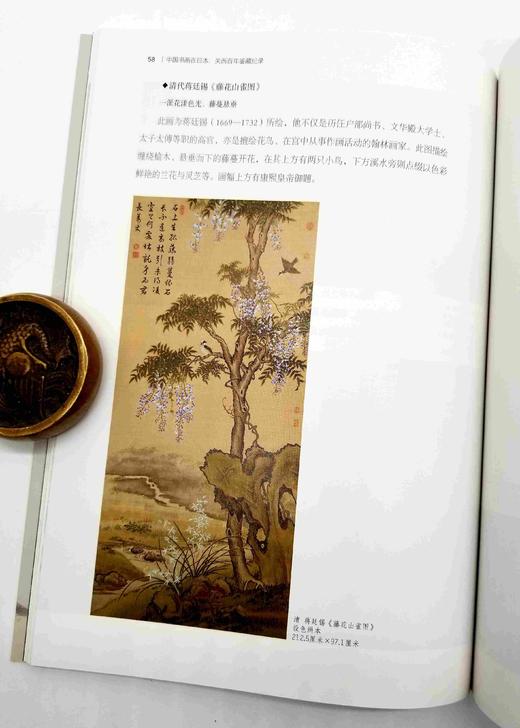 58 | 中国书画在日本：关西百年鉴藏纪录
◆清代蒋廷锡《藤花山雀图》
一派花漾色光、藤蔓悬垂
此画为蒋廷锡（1669—1732）所绘，他不仅是历任户部尚书、文华殿大学士、
太子太傅等职的高官，亦是擅绘花鸟、在宫中从事作画活动的翰林画家。此图描绘
缠绕榆木、悬垂而下的藤蔓开花，在其上方有两只小鸟，下方溪水旁则点缀以色彩
鲜艳的兰花与灵芝等。画幅上方有康熙皇帝御题。
石上生孤藤弱蔓依石
长不逢高枝引未得凌
空上何处堪托身为君
长万丈
清 蒋廷锡《藤花山雀图》
设色绢本
212.5厘米×97.1厘米